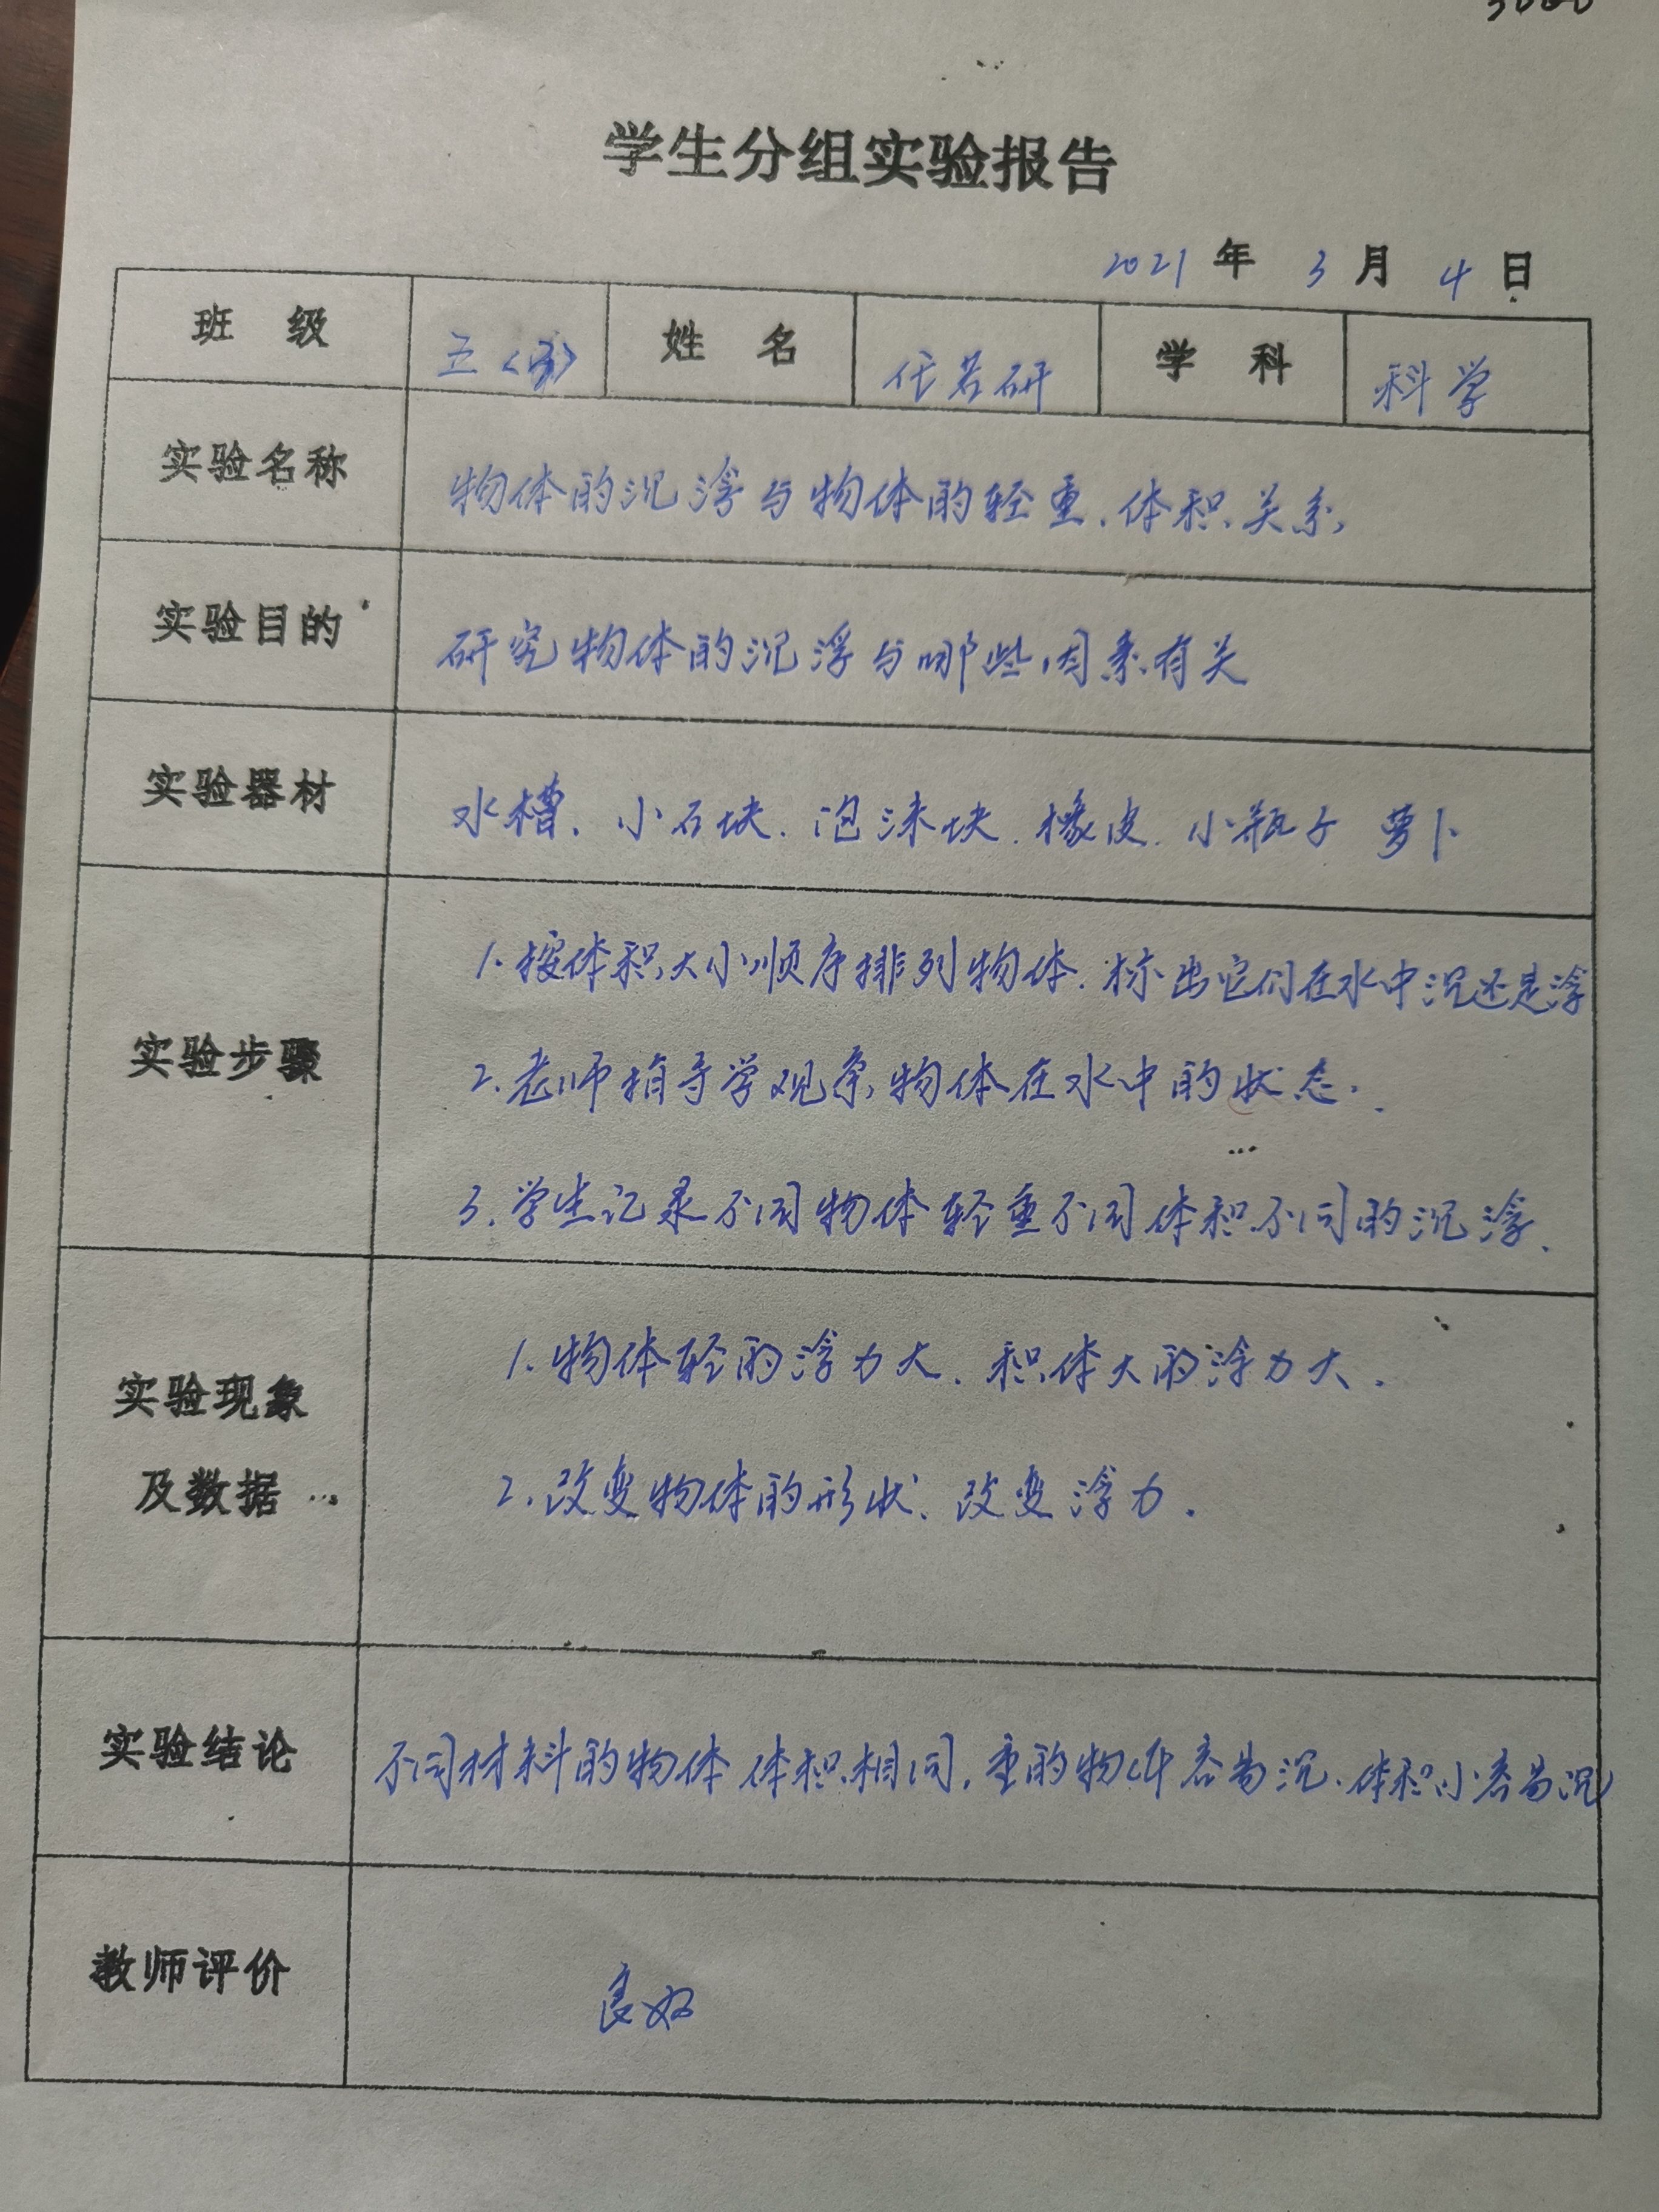 学生分组实验报告
2021 年 3 月 4 日
班 级 五 姓 名 任若研 学 科 科学
实验名称 物体的沉浮与物体的轻重、体积关系
实验目的 研究物体的沉浮与哪些因素有关
实验器材 水槽、小石块、泡沫块、橡皮、小瓶子 萝卜
1. 按体积大小顺序排列物体、标出它们在水中沉还是浮
实验步骤
2. 老师指导学观察物体在水中的状态.
3. 学生记录不同物体轻重不同体积不同的沉浮.
1. 物体轻的浮力大、积体大的浮力大.
实验现象
及数据
2. 改变物体的形状、改变浮力.
实验结论 不同材料的物体 体积相同,重的物体容易沉、体积小容易沉
教师评价 良好